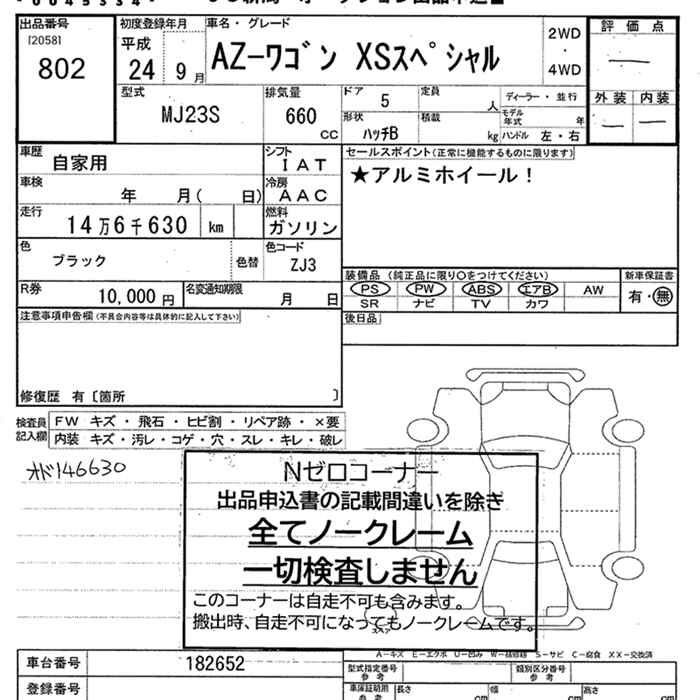 出品番号
[2058]
802
初度登録年月
平成
24 9月
車名・グレード
AZーワゴン XSスペシャル
2WD
・
4WD
評価点
―
外装 内装
― ―
型式
MJ23S
排気量
660
CC
ドア 5
定員 人
ディーラー・並行
モデル年式 年
形状
ハッチB
積載 kg
ハンドル 左・右
車歴 自家用
シフト
IAT
セールスポイント(正常に機能するものに限ります)
★アルミホイール!
車検 年 月( 日)
冷房
AAC
走行 14万6千630 km
燃料
ガソリン
色 ブラック
色替
色コード
ZJ3
R券 10,000円
名変通知期限 月 日
装備品 (純正品に限り○をつけてください)
新車保証書
PS PW ABS エアB AW
SR ナビ TV カワ
有・無
後日品
注意事項申告欄(不具合内容等は具体的に記入して下さい)
修復歴 有〔箇所 〕
検査員記入欄
FW キズ・飛石・ヒビ割・リペア跡・×要
内装 キズ・汚レ・コゲ・穴・スレ・キレ・破レ
オド146630
Nゼロコーナー
出品申込書の記載間違いを除き
全てノークレーム
一切検査しません
このコーナーは自走不可も含みます。
搬出時、自走不可になってもノークレームです。
A－キズ E－エクボ U－凹み W－補修跡 S－サビ C－腐食 XX－交換済
車台番号 182652
型式指定番号 参考
類別区分番号 参考
登録番号
車庫証明用 参考
長さ cm
幅 cm
高さ cm